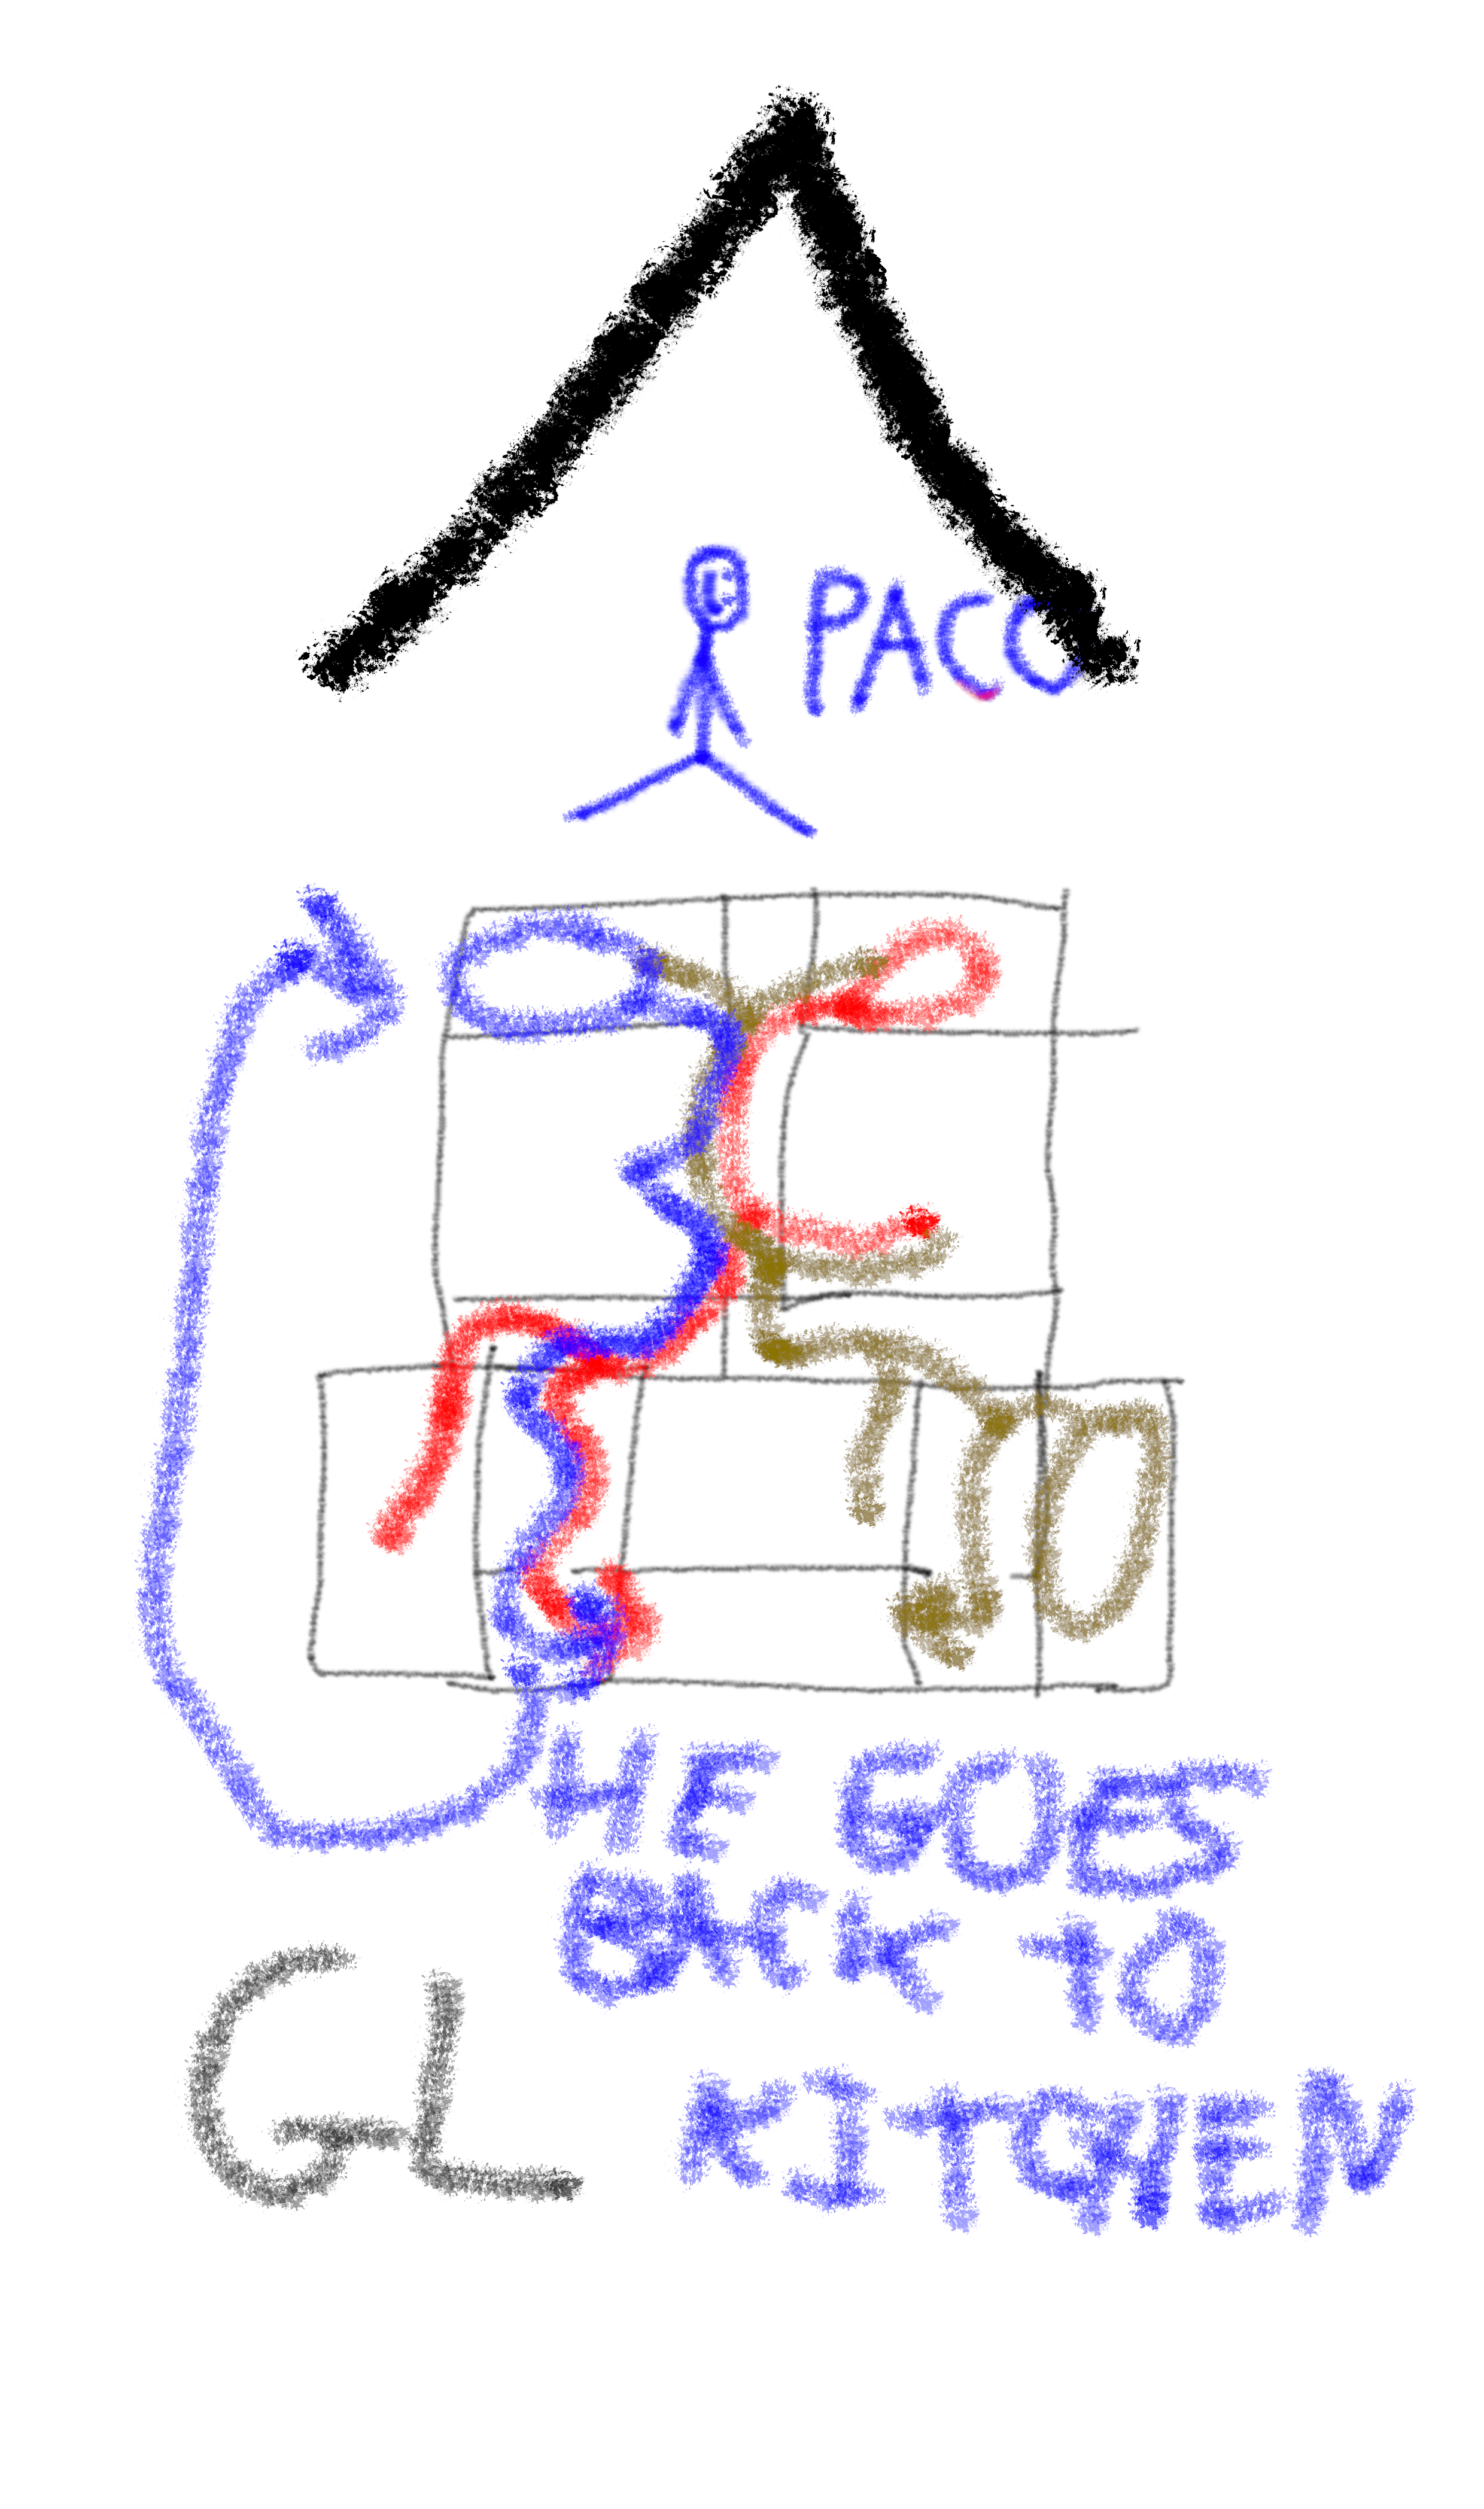 PACO
HE GOES
BACK TO
KITCHEN
GL